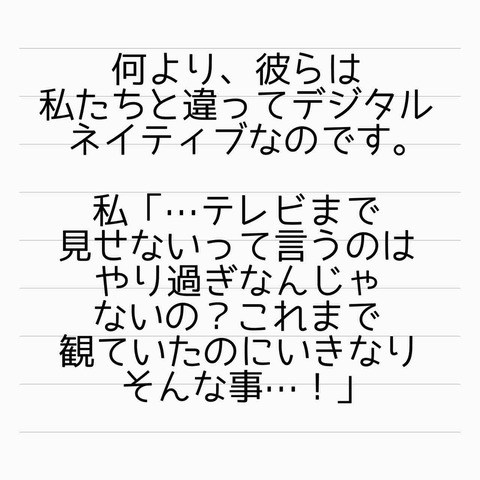 何より、彼らは
私たちと違ってデジタル
ネイティブなのです。
私「…テレビまで
見せないって言うのは
やり過ぎなんじゃ
ないの？これまで
観ていたのにいきなり
そんな事…！」